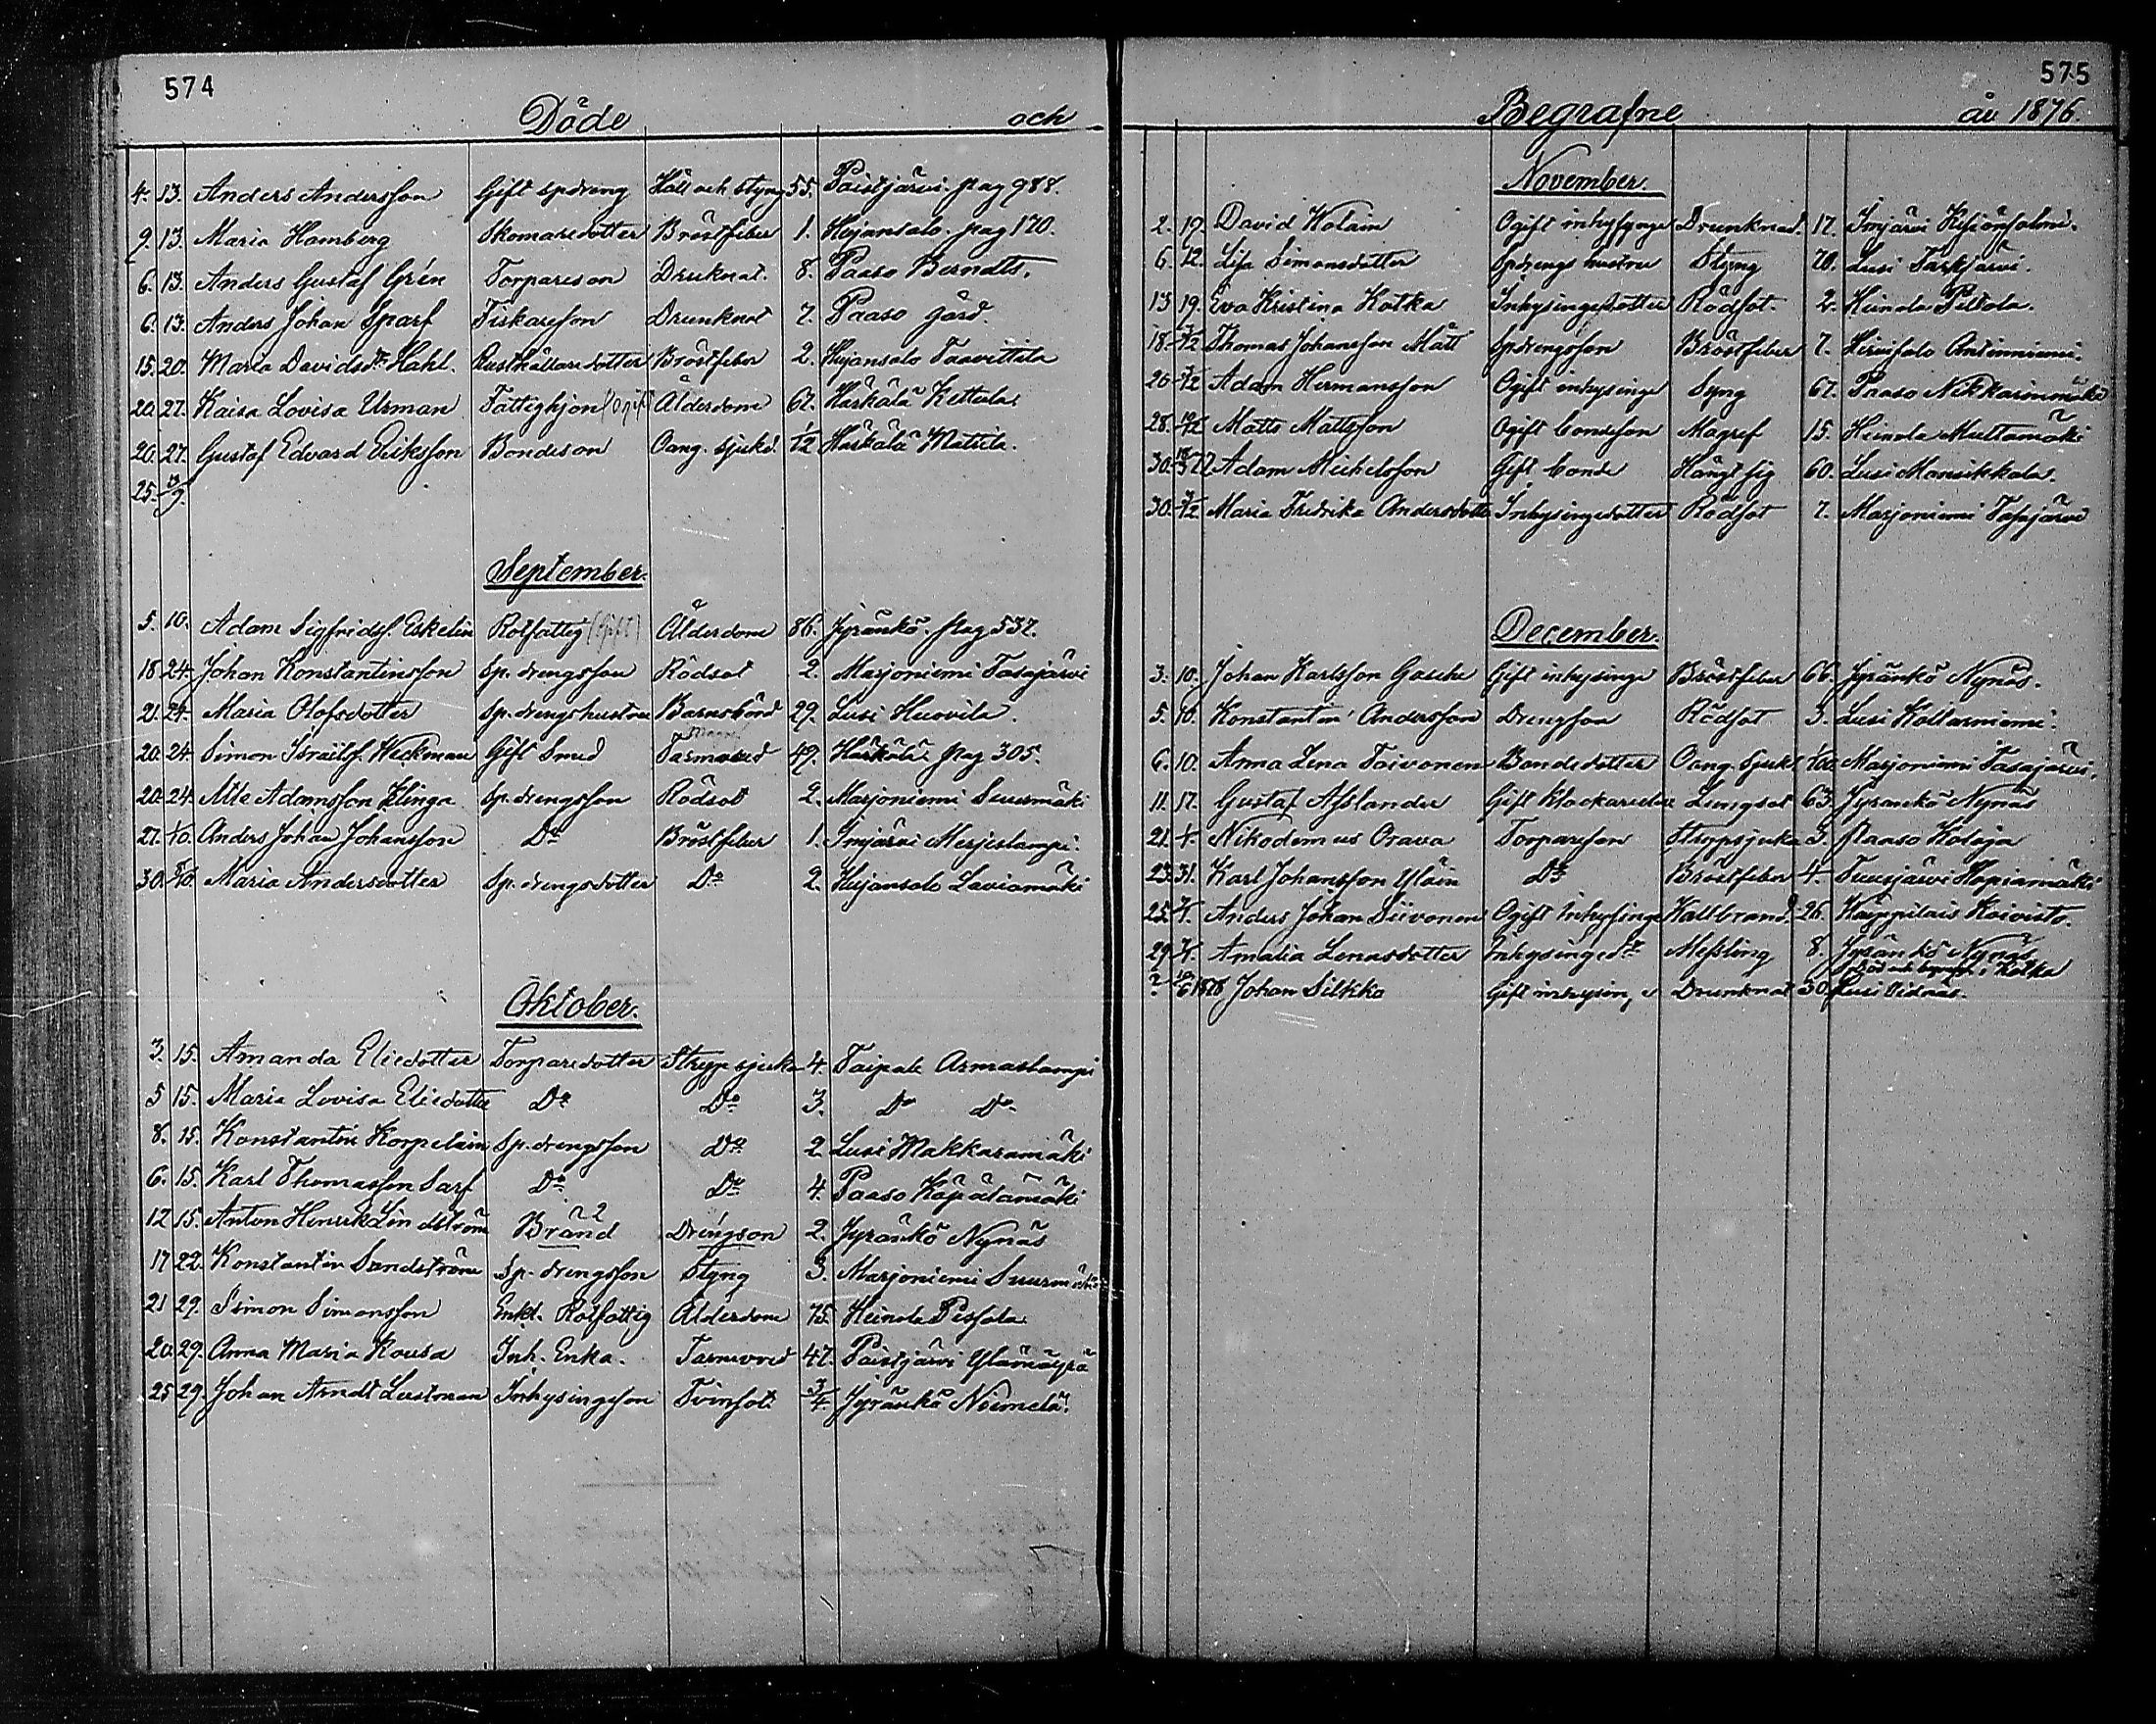 574
Döde och
4. 13. Anders Andersson Gift spdreng Håll och styng 55. Paistjärvi. pag 988.
9. 13. Maria Hamberg Skomaredotter Bröstfeber 1. Hujansalo. pag 170.
6. 13. Anders Gustaf Grén Torpareson Druknat. 8. Paaso Berndts.
6. 13. Anders Johan Sparf Fiskareson Drunknat 7. Paaso gård.
15. 20. Maria Davidsdr Hahl. Rusthållaredotter Bröstfeber 2. Hujansalo Taavettila
20. 27. Kaisa Lovisa Urman Fattighjon (ogift) Ålderdom 67. Härkälä Kettula.
20. 27. Gustaf Edvard Eriksson Bondeson Oang. sjukd. 1/12 Härkälä Mattila.
25.
September.
5. 10. Adam Sigfridss. Eskelin Rotfattig (Gift) Ålderdom 86. Jyränkö. pag 537.
18 24. Johan Konstantinsson Sp. drengsson Rödsot 2. Marjoniemi Tasajärvi
21. 24. Maria Olofsdotter Sp. drengshustru Barnsbörd 29. Lusi Huovila.
20. 24. Simon Israelss. Weckman Gift Smed Tarmvred 49. Härkälä pag 305.
20. 24. Atte Adamsson Klinga Sp. drengsson Rödsot 2. Marjoniemi Suurmäki
27. 1/10. Anders Johan Johansson Do Bröstfeber 1. Imjärvi Merjeslampi.
30. 8/10. Maria Andersdotter Sp. drengsdotter Do 2. Hujansalo Laviamäki
Oktober.
3. 15. Amanda Eliedotter Torparedotter Strypsjuka 4. Taipale Armaslampi
5 15. Maria Lovisa Eliedotter Do Do 3. Do Do
8. 15. Konstantin Korpelain Sp. drengsson Do 2 Lusi Makkaramäki
6. 15. Karl Thomasson Sarf Do Do 4. Paaso Käpälämäki
12 15. Anton Henrik Lindström Brånd Drengson 2. Jyränkö Nynäs
17 22. Konstantin Sandström Sp. drengsson Styng 3. Marjoniemi Suurmäki
21 29. Simon Simonsson Enkl. Rotfattig Ålderdom 75. Heinola Pissola
20. 29. Anna Maria Kousa Inh. Enka. Tarmvred 47. Paistjärvi Ylämäyrä
25 29. Johan Arndt Lustman Inhysingeson Tvinsot. 3/4. Jyränkö Niemelä.
575
Begrafne år 1876.
November.
2. 19. David Kolain Ogift inhysinge Drunknad. 17. Imjärvi
6. 12. Lisa Simonsdotter Spdrengs hustru Styng 70. Lusi Särkjärvi.
13 19. Eva Kristina Kotka Inhysingedotter Rödsot. 2. Heinola Peltola.
18. 3/12 Thomas Johansson Mått Spdrengsson Bröstfeber 7. Hirvisalo Anttinniemi.
20 3/12 Adam Hermansson Ogift inhysinge Styng 67. Paaso Nikkarinmäki
28. 10/12 Matts Mattsson Ogift bondeson Magref 15. Heinola Multamäki
30. Adam Michelsson Gift bonde Hängt sig 60. Lusi Mansikkala.
30. 3/12 Maria Fredrika Andersdotter Inhysingedotter Rödsot 7. Marjoniemi Tasajärvi
December.
3. 10. Johan Karlsson Gasche Gift inhysinge Bröstfeber 66. Jyränkö Nynäs.
5. 10. Konstantin Andersson Drengson Rödsot 3. Lusi Koltarniemi.
6. 10. Anna Lena Toivonen Bondedotter Oang. sjukd. Marjoniemi Tasajärvi.
11. 17. Gustaf Asslander Gift Klockare Lungsot 63. Jyränkö Nynäs
21. Nikodemus Orava Torpareson Strypsjuka 3. Paaso Kotaja
23. 31. Karl Johansson Yläin Do Bröstfeber 4. Tuusjärvi Hapiamäki
25. Anders Johan Siivonen Ogift Inhysinge Kallbrand 26. Käyppiläis Koivisto.
29. Amalia Lenasdotter Inhysingedr Messling 8. Jyränkö Nynäs
? 10/6 1878 Johan Silkko Gift inhysing Drunknat 30. Lusi Vidnäs. Död och begrafven i Kotka